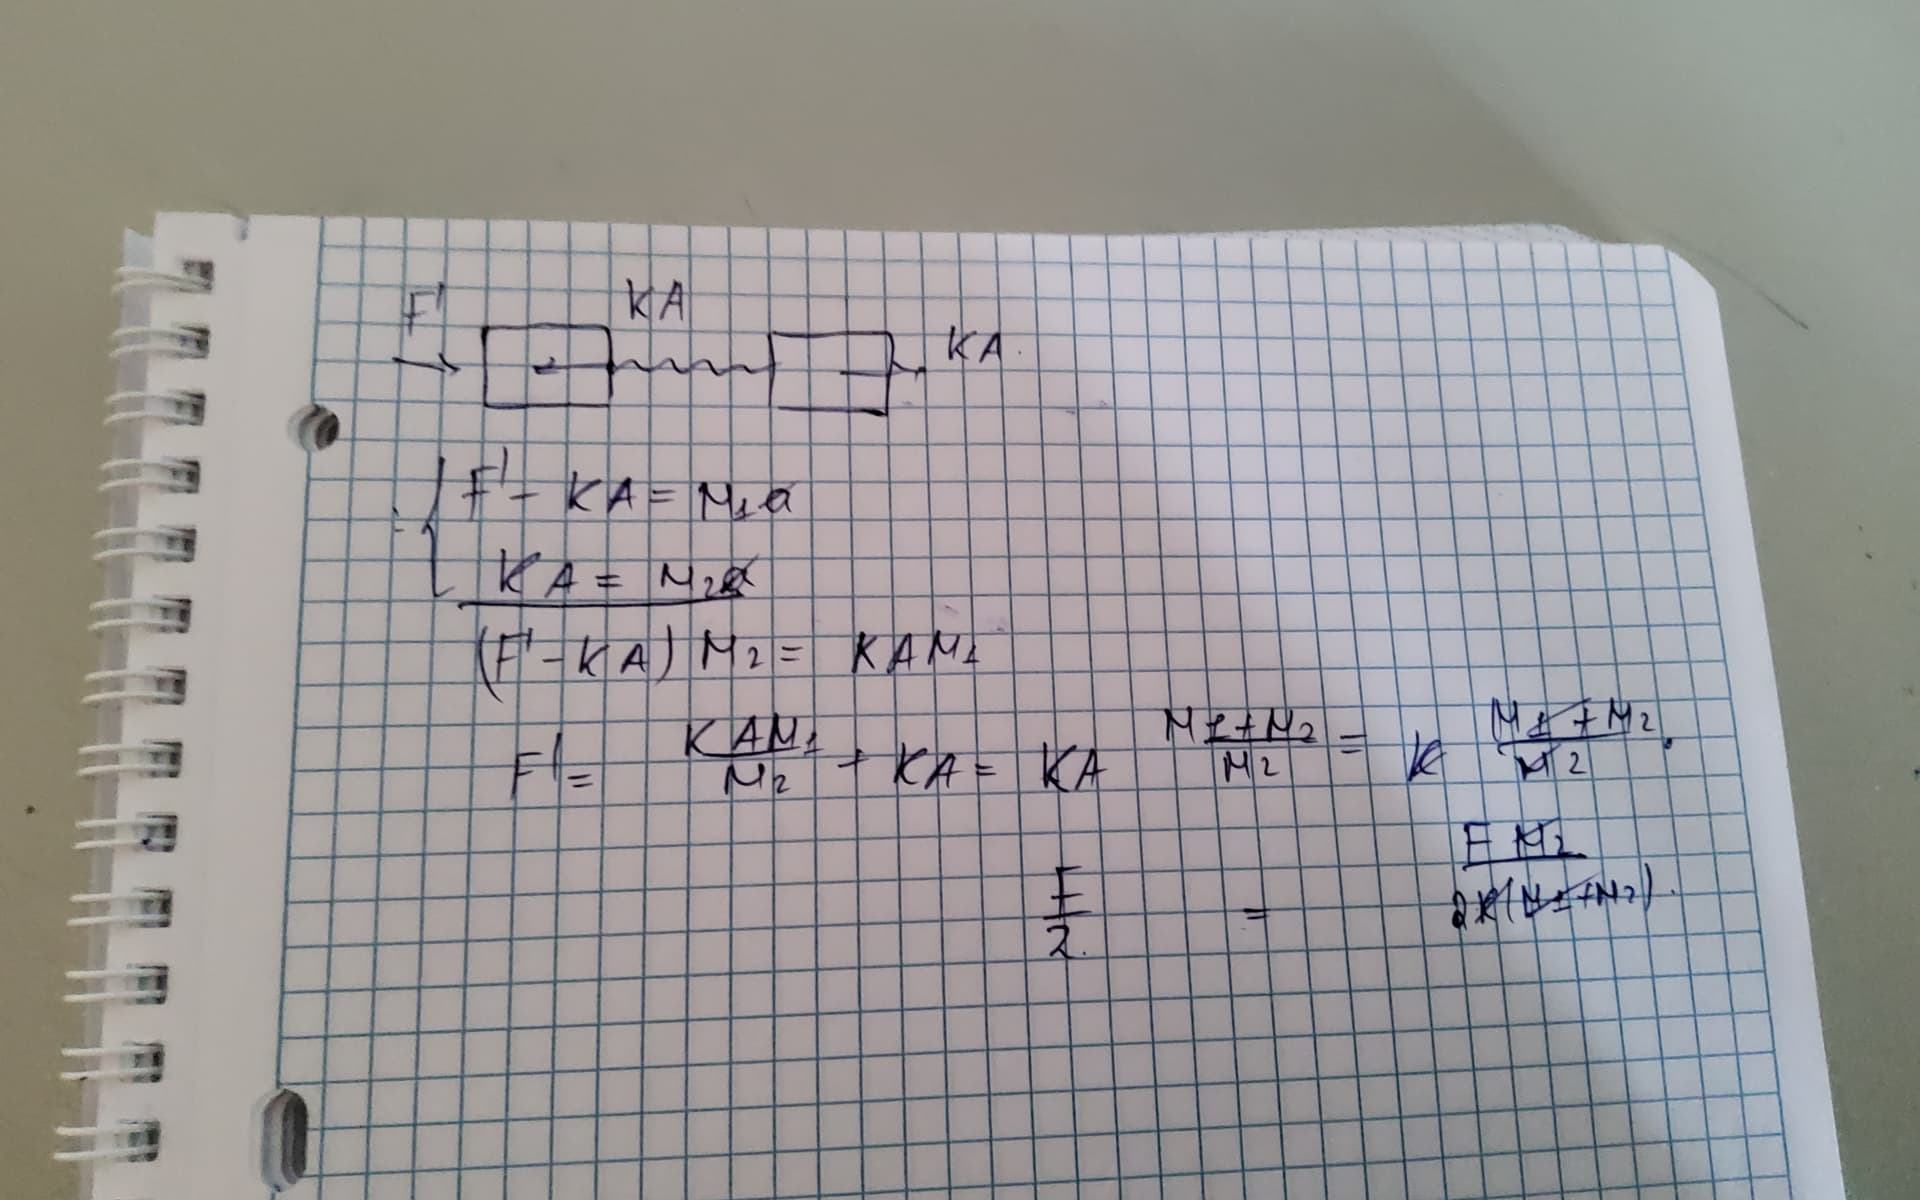 F' KA
KA.
F' - KA = M₁a
KA = M₂a
(F' - KA) M₂ = KAM₁
F' = KAM₁/M₂ + KA = KA M₁+M₂/M₂ = K M₁+M₂/M₂ .
F/2. = F M₂/2K(M₁+M₂).